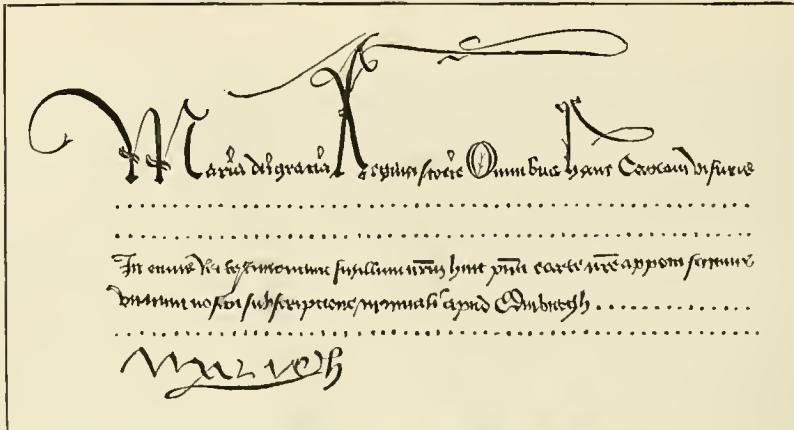 Maria dei gracia Regina Omnibus hanc Cartam visuris
In cuius Rei testimonium sigillum nrm̃ huic pñti carte nrẽ apponi fecimus
subscriptione manuali apud Edinburgh